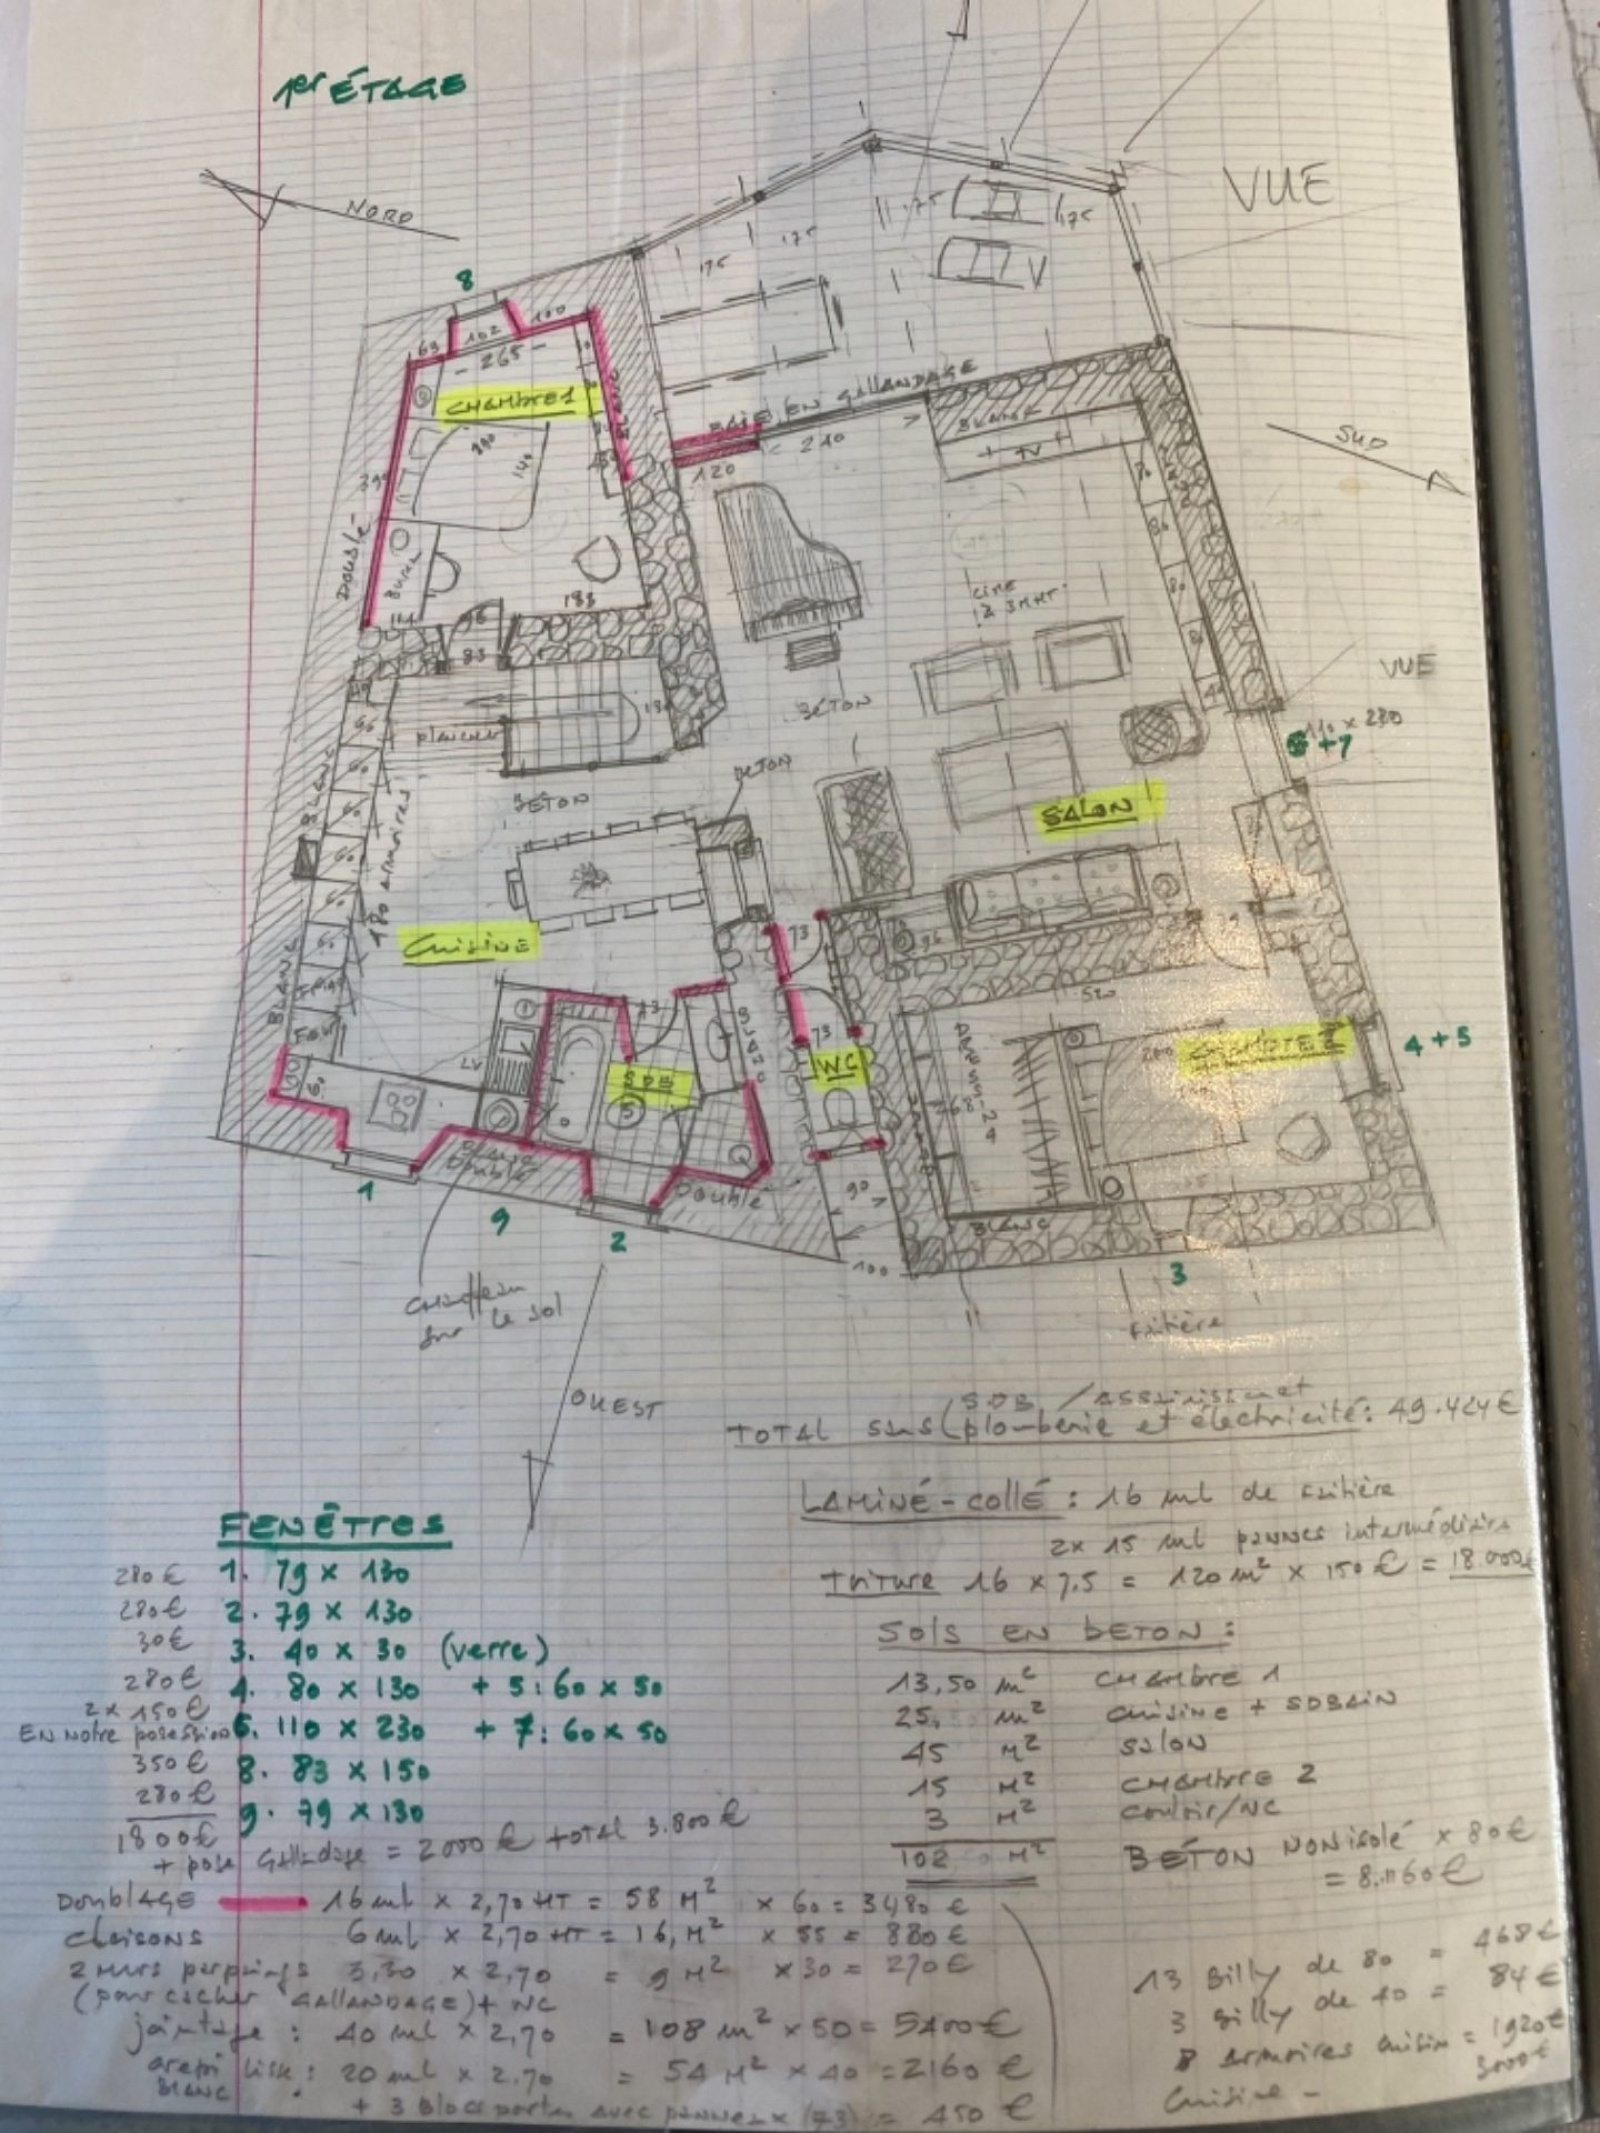 1er ÉTAGE
NORD
VUE
8
175
175
175
175
63
102
100
- 265 -
CHAMBRE 1
BAIE EN GALLANDAGE
240
120
BLANC
TV
SUD
190
140
399
DOUBLÉ
BUREAU
80
80
80
CINE
183
96
83
VUE
110 x 230
6+7
BÉTON
plancher
BÉTON
BETON
SALON
60
BLANC
180 armoires
CUISINE
BLANC
Frigo
Four
60
LV
73
73
73
SDB
BLANC
WC
520
DRESSING
200
CHAMBRE 2
4 + 5
BLANC
DOUBLÉ
Doublé
90
100
BLANC
1
9
2
3
chauffeau
sur le sol
faitière
OUEST
SDB / Assainissement
TOTAL sans (plomberie et électricité : 49.424 €
LAMINÉ-COLLÉ : 16 ml de faitière
2x 15 ml pannes intermédiaires
toiture 16 x 7.5 = 120 m² x 150 € = 18.000 €
FENÊTRES
280 € 1. 79 x 130
280 € 2. 79 x 130
30 € 3. 40 x 30 (verre)
280 € 4. 80 x 130 + 5 : 60 x 50
2 x 150 €
EN Notre posession 6. 110 x 230 + 7 : 60 x 50
350 € 8. 83 x 150
280 € 9. 79 x 130
1800 €
+ pose Gallandage = 2000 € total 3.800 €
SOLS EN BETON :
13,50 m² CHAMBRE 1
25, m² cuisine + SDBAIN
45 M² salon
15 M² CHAMBRE 2
3 M² couloir/WC
102 M²
BÉTON NON isolé x 80 €
= 8.160 €
DOUBLAGE 16 ml x 2,70 HT = 58 M² x 60 = 3480 €
cloisons 6 ml x 2,70 HT = 16, M² x 55 = 880 €
2 murs parpaings 3,30 x 2,70 = 9 M² x 30 = 270 €
(pour cacher GALLANDAGE) + WC
jointage : 40 ml x 2,70 = 108 m² x 50 = 5400 €
crepi lisse : 20 ml x 2.70 = 54 M² x 40 = 2160 €
BLANC
+ 3 Blocs portes avec panneaux (73) = 450 €
13 Billy de 80 = 468 €
3 Billy de 40 = 84 €
8 Armoires cuisine = 1920 €
Cuisine - 3000 €